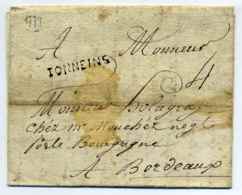 A Monsieur
TONNEINS
4
Monsieur
chez Mr Mouchet negt
porte Bourgogne
A Bordeaux